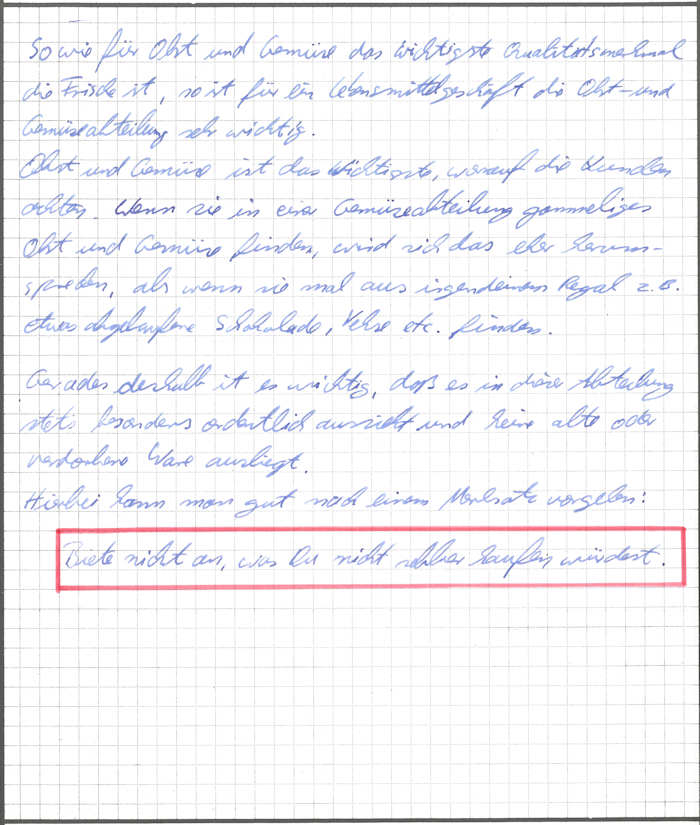 So wie für Obst und Gemüse das wichtigste Qualitätsmerkmal
die Frische ist, so ist für ein Lebensmittelgeschäft die Obst- und
Gemüseabteilung sehr wichtig.
Obst und Gemüse ist das Wichtigste, worauf die Kunden
achten. Wenn sie in einer Gemüseabteilung gammeliges
Obst und Gemüse finden, wird sich das eher herum-
sprechen, als wenn sie mal aus irgendeinem Regal z.B.
etwas abgelaufene Schokolade, Kekse etc. finden.
Gerades deshalb ist es wichtig, daß es in dieser Abteilung
stets besonders ordentlich aussieht und keine alte oder
verdorbene Ware ausliegt.
Hierbei kann man gut nach einem Merksatz vorgehen:
Biete nicht an, was Du nicht selber kaufen würdest.